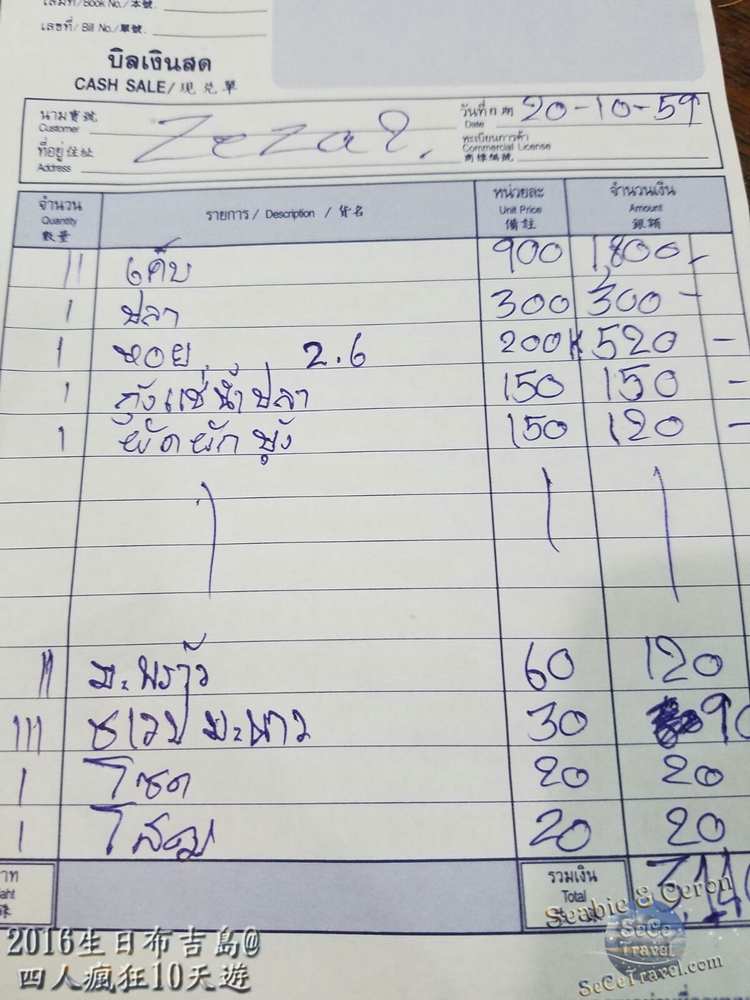 เล่มที่/Book No./本號.
เลขที่/Bill No./單號.
บิลเงินสด
CASH SALE/現兌單
นามลูกค้า寶號 วันที่ 20-10-59
Customer Date
ที่อยู่住址 ทะเบียนการค้า
Address Commercial License
商標編號
จำนวน รายการ / Description / 貨名 หน่วยละ จำนวนเงิน
Quantity Unit Price Amount
數量 備註 銀額
11 900 1,800 -
1 ปลา 300 300 -
1 หอย 2.6 200K 520 -
1 กุ้งแช่น้ำปลา 150 150 -
1 ผัดผักบุ้ง 150 120 -
11 มะพร้าว 60 120
111 มะนาว 30 90
1 โซดา 20 20
1 20 20
บาท รวมเงิน 3,140
Baht Total
Seabie & Ceron
SeCe
Travel
SeCeTravel.com
2016生日布吉島@
四人瘋狂10天遊